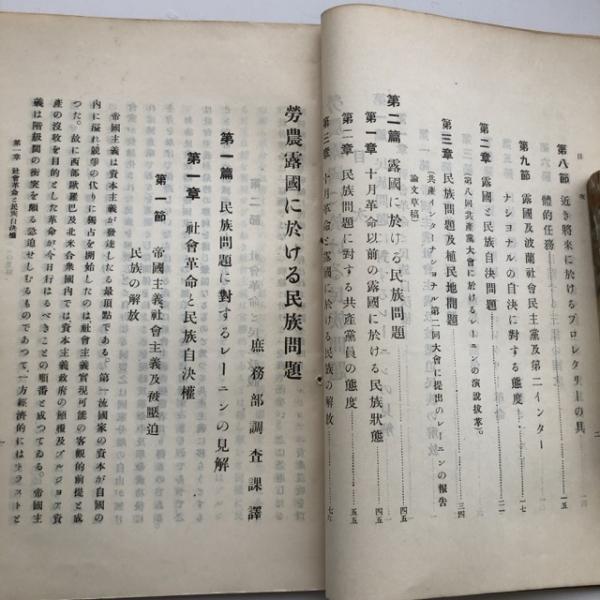 目次
第八節 近き將來に於けるプロレタリアの具
體的任務 一五
第九節 露國及波蘭社會民主黨及第二インター
ナショナルの自決に對する態度 一七
第二章 露國と民族自決問題 二一
(第八回共產黨大會に於けるレーニンの演說拔萃)。
第三章 民族問題及植民地問題 三四
(共產インターナショナル第二回大會に提出のレーニンの報告
論文草稿)
第二篇 露國に於ける民族問題 四五
第一章 十月革命以前の露國に於ける民族狀態 四五
第二章 民族問題に對する共產黨員の態度 五五
第三章 十月革命と露國に於ける民族の解放 七六
二
勞農露國に於ける民族問題
庶務部調査課譯
第一篇 民族問題に對するレーニンの見解
第一章 社會革命と民族自決權
第一節 帝國主義社會主義及被壓迫
民族の解放
帝國主義は資本主義が發達したる最頂點である。第一流國家の資本が自國の
內に溢れ競爭の代りに獨占を開始したのは社會主義實現可能の客觀的前提と成
つた。故に西部歐羅巴及北米合衆國內では資本主義政府の顚覆及ブルジョズ資
產の沒收を目的とした革命が今日行はるべきことの順番と成つてゐる。帝國主
義は階級間の衝突を頗る急迫せしむるものであつて一方經濟的にはトラストと
第一章 社會革命と民族自決權
一